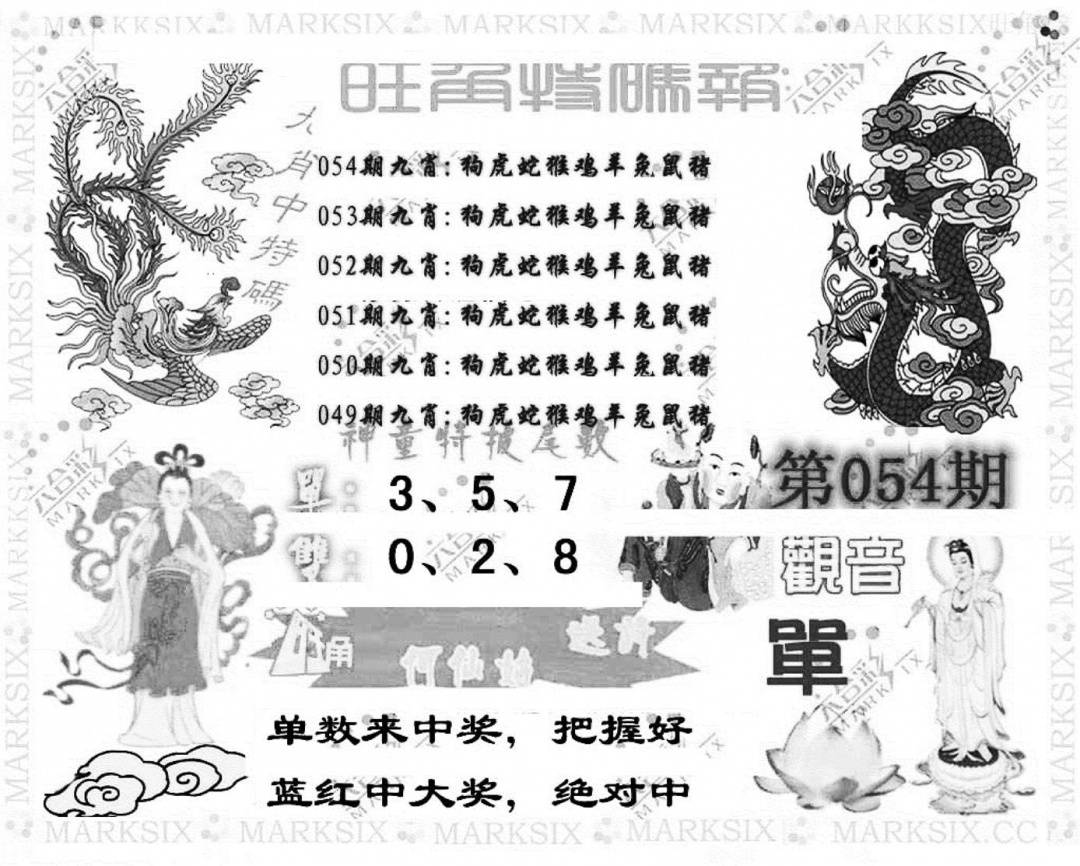 旺角特碼報
九肖中特碼
054期九肖:狗虎蛇猴鸡羊兔鼠猪
053期九肖:狗虎蛇猴鸡羊兔鼠猪
052期九肖:狗虎蛇猴鸡羊兔鼠猪
051期九肖:狗虎蛇猴鸡羊兔鼠猪
050期九肖:狗虎蛇猴鸡羊兔鼠猪
049期九肖:狗虎蛇猴鸡羊兔鼠猪
神童特报尾數
第054期
單:3、5、7
雙:0、2、8
觀音
單
角
何仙姑
单数来中奖，把握好
蓝红中大奖，绝对中
MARKSIX
MARKSIX.CC
六合彩